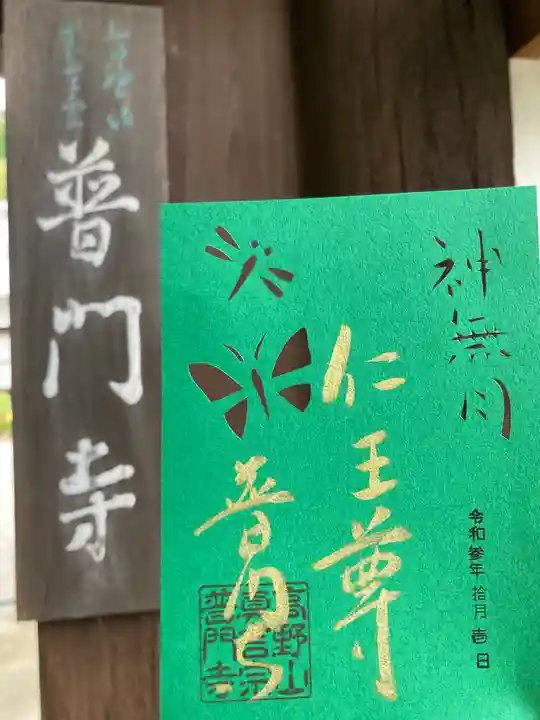 普門寺
神無月
令和参年 拾月 壱日
仁王尊
普門寺
高野山
真言宗
普門寺